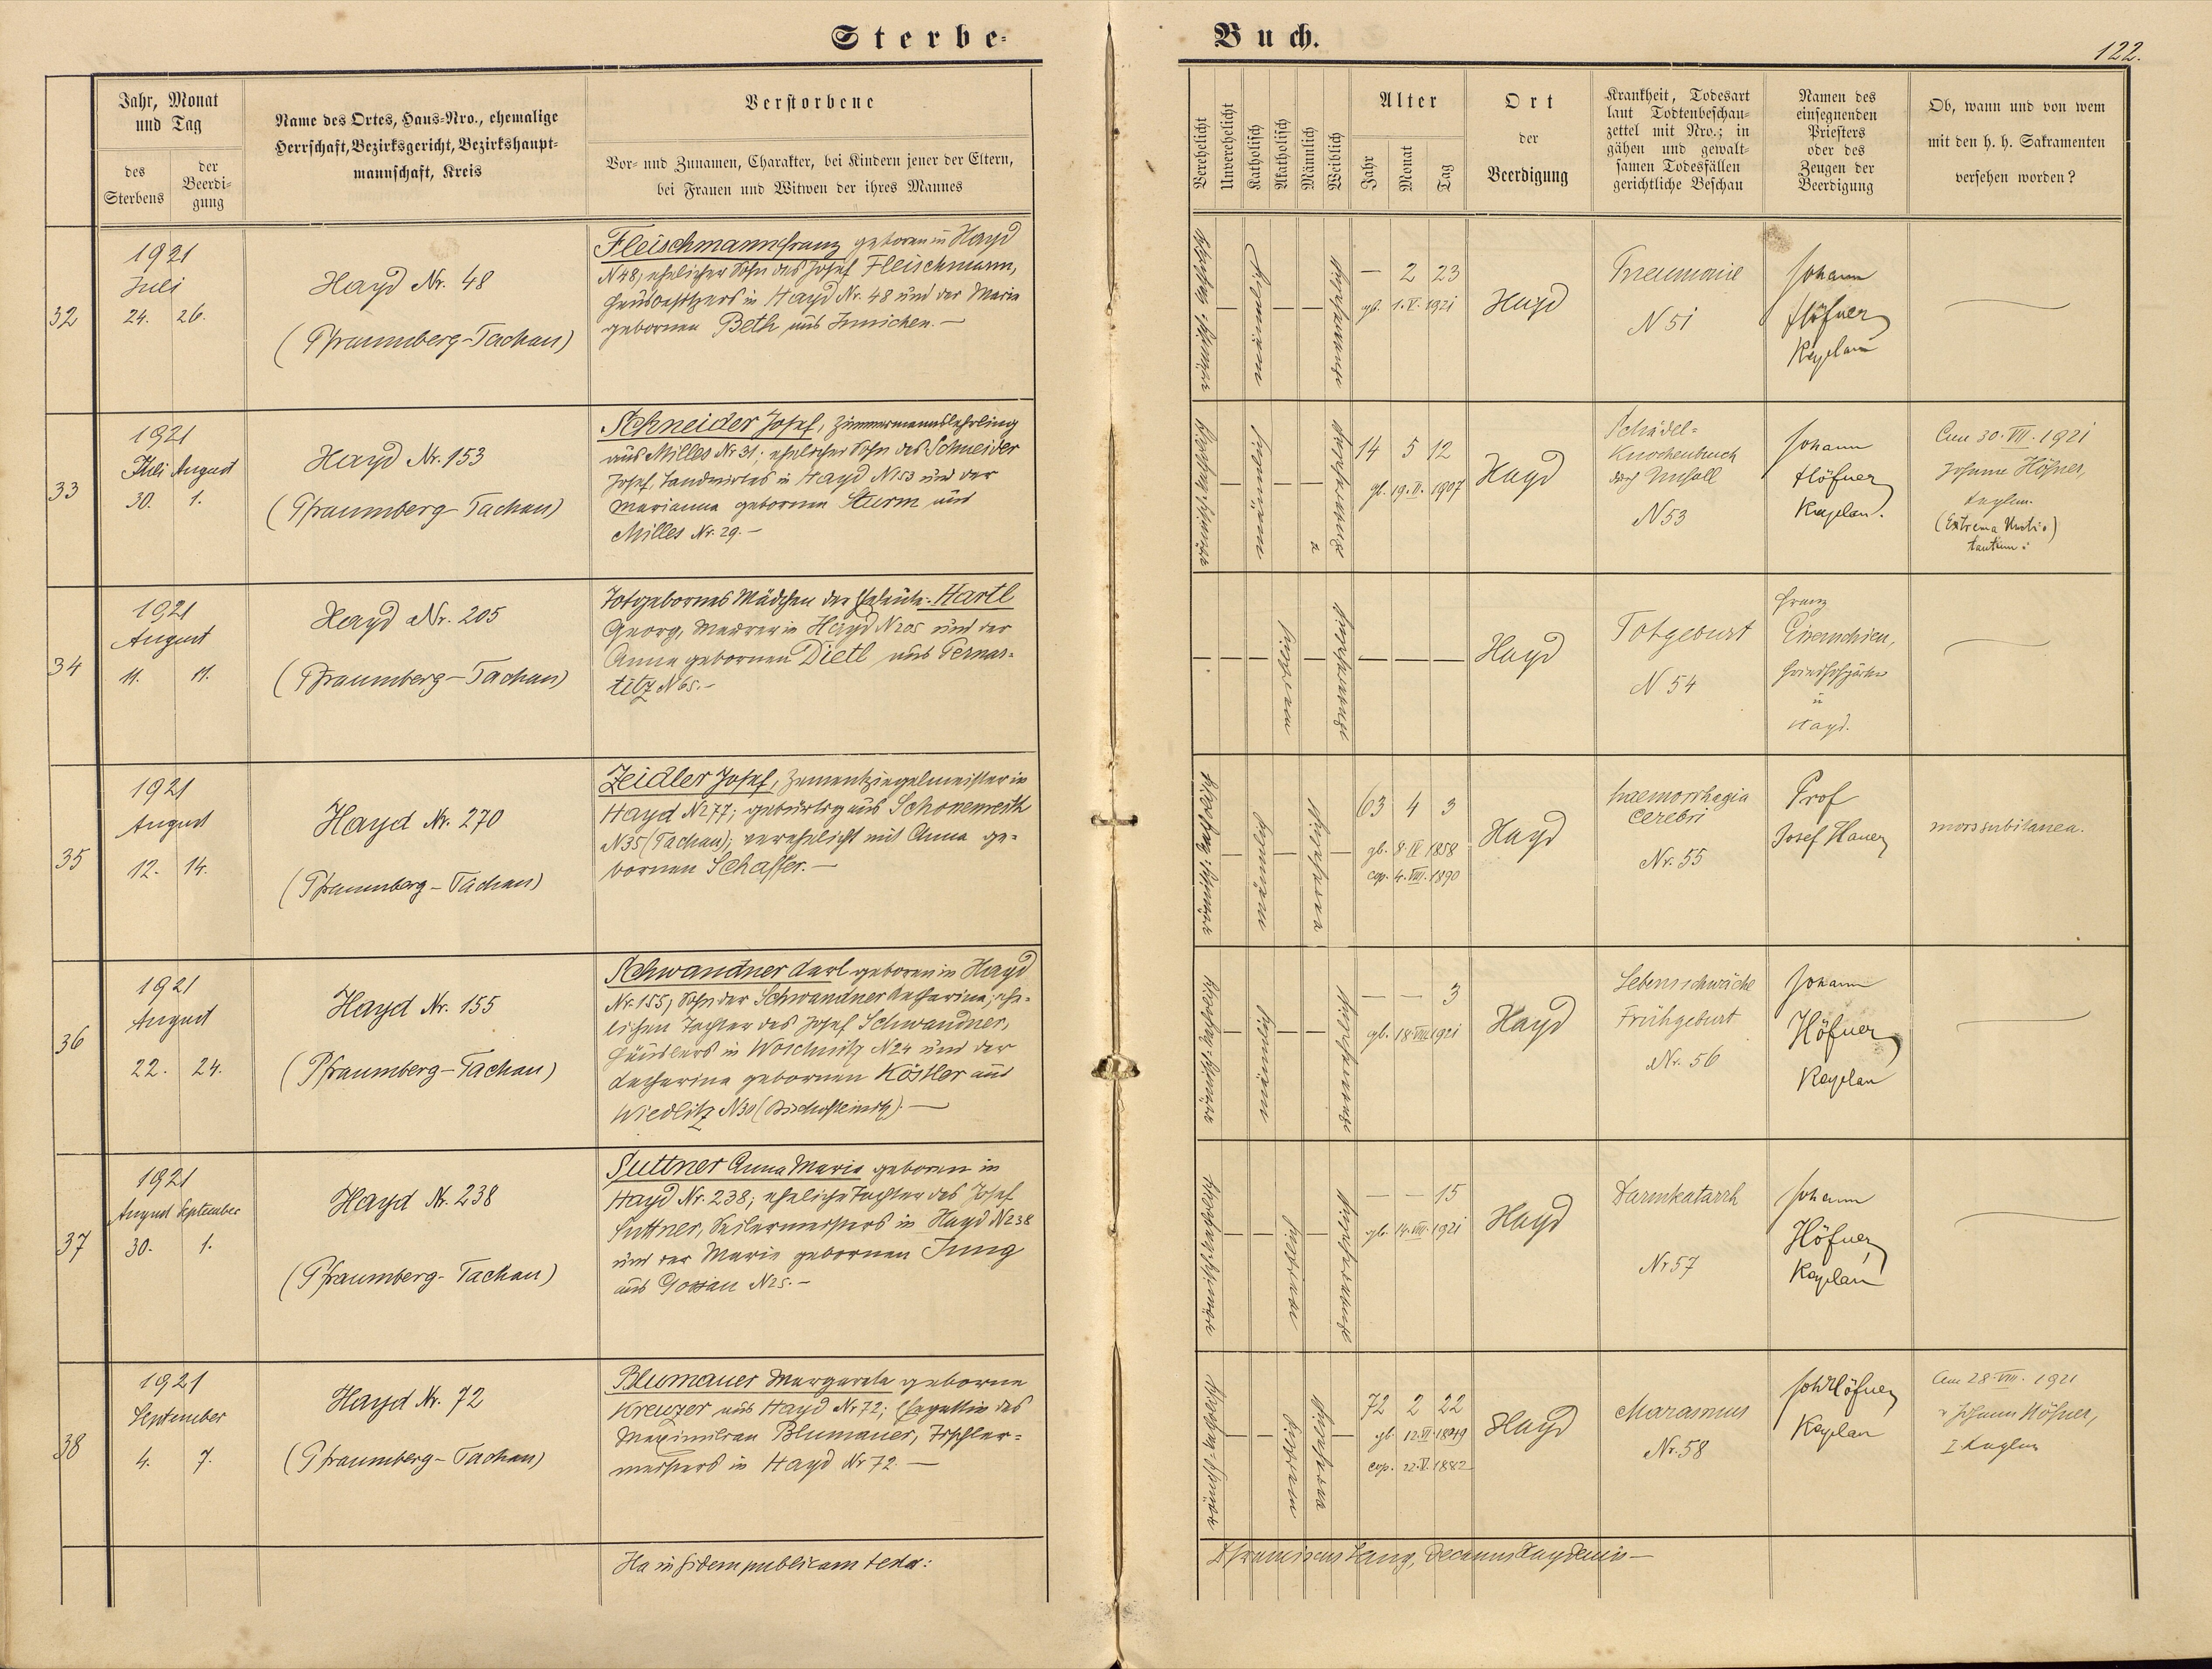 Sterbe-
Buch.
122.
Jahr, Monat
und Tag
des
Sterbens
der
Beerdi-
gung
Name des Ortes, Haus-Nro., ehemalige
Herrschaft, Bezirksgericht, Bezirkshaupt-
mannschaft, Kreis
Verstorbene
Vor- und Zunamen, Charakter, bei Kindern jener der Eltern,
bei Frauen und Witwen der ihres Mannes
Verehelicht
Unverehelicht
Katholisch
Akatholisch
Männlich
Weiblich
Alter
Jahr
Monat
Tag
Ort
der
Beerdigung
Krankheit, Todesart
laut Todtenbeschau-
zettel mit Nro.; in
gähen und gewalt-
samen Todesfällen
gerichtliche Beschau
Namen des
einsegnenden
Priesters
oder des
Zeugen der
Beerdigung
Ob, wann und von wem
mit den h. h. Sakramenten
versehen worden?
32
1921
Juli
24. 26.
Hayd Nr. 48
(Pfraumberg-Tachau)
Fleischmann Franz geboren in Hayd
N 48, ehelicher Sohn des Josef Fleischmann,
Hausbesitzers in Hayd Nr. 48 und der Maria
gebornen Beth aus Innichen.—
römisch-katholisch
männlich
unverehelicht
— 2 23
gb. 1.V.1921
Hayd
Pneumonie
N 51
Johann
Höfner
Kaplan
33
1921
Juli August
30. 1.
Hayd Nr. 153
(Pfraumberg-Tachau)
Schneider Josef, Zimmermannslehrling
aus Milles Nr 31; ehelicher Sohn des Schneider
Josef, Landwirtes in Hayd N 153 und der
Marianna gebornen Sturm aus
Milles Nr. 29.—
römisch-katholisch
männlich
unverehelicht
14 5 12
gb. 19.II.1907
Hayd
Schädel-
Knochenbruch
durch Unfall
N 53
Johann
Höfner
Kaplan.
Am 30.VII.1921
Johann Höfner,
Kaplan.
(Extrema Unctio)
tantum:
34
1921
August
11. 11.
Hayd Nr. 205
(Pfraumberg-Tachau)
Totgebornes Mädchen der Eheleute: Hartl
Georg, Maurer in Hayd N 205 und der
Anna gebornen Dietl aus Pernar-
titz N 65.—
weiblich
unverehelicht
Hayd
Totgeburt
N 54
Franz
Friedhofgärtner
in
Hayd.
35
1921
August
12. 14.
Hayd Nr. 270
(Pfraumberg-Tachau)
Zeidler Josef, Zementziegelmeister in
Hayd N 277; gebürtig aus Schonewerth
N 35 (Tachau); verehelicht mit Anna ge-
bornen Schaffer.—
römisch-katholisch
männlich
verehelicht
63 4 3
gb. 8.IV.1858
cop. 4.VIII.1890
Hayd
haemorrhagia
cerebri
Nr. 55
Prof
Josef Hauer
mors subitanea.
36
1921
August
22. 24.
Hayd Nr. 155
(Pfraumberg-Tachau)
Schwandner Karl geboren in Hayd
Nr. 155, Sohn der Schwandner Katharina, ehe-
lichen Tochter des Josef Schwandner,
Häuslers in Woschnitz N 24 und der
Katharina gebornen Köstler aus
Wiedlitz N 30 (Bischofteinitz).—
römisch-katholisch
männlich
unverehelicht
— — 3
gb. 18.VIII.1921
Hayd
Lebensschwäche
Frühgeburt
Nr. 56
Johann
Höfner
Kaplan
37
1921
August September
30. 1.
Hayd Nr. 238
(Pfraumberg-Tachau)
Suttner Anna Maria geboren in
Hayd Nr. 238; eheliche Tochter des Josef
Suttner, Seilermeisters in Hayd N 238
und der Maria gebornen Jung
aus Gossau N 25.—
römischkatholisch
weiblich
unverehelicht
— — 15
gb. 14.VIII.1921
Hayd
Darmkatarrh
Nr 57
Johann
Höfner
Kaplan
38
1921
September
4. 7.
Hayd Nr. 72
(Pfraumberg-Tachau)
Blumauer Margareta geborne
Kreuzer aus Hayd Nr 72; Ehegattin des
Maximilian Blumauer, Tischler-
meisters in Hayd Nr 72.—
römisch-katholisch
weiblich
verehelicht
72 2 22
gb. 12.VI.1849
cop. 22.V.1882
Hayd
Marasmus
Nr. 58
Joh Höfner
Kaplan
Am 28.VIII.1921
v Johann Höfner,
I Kaplan
Ita in fidem publicam testor:
Franciscus Lang, Decanus Haydensis—